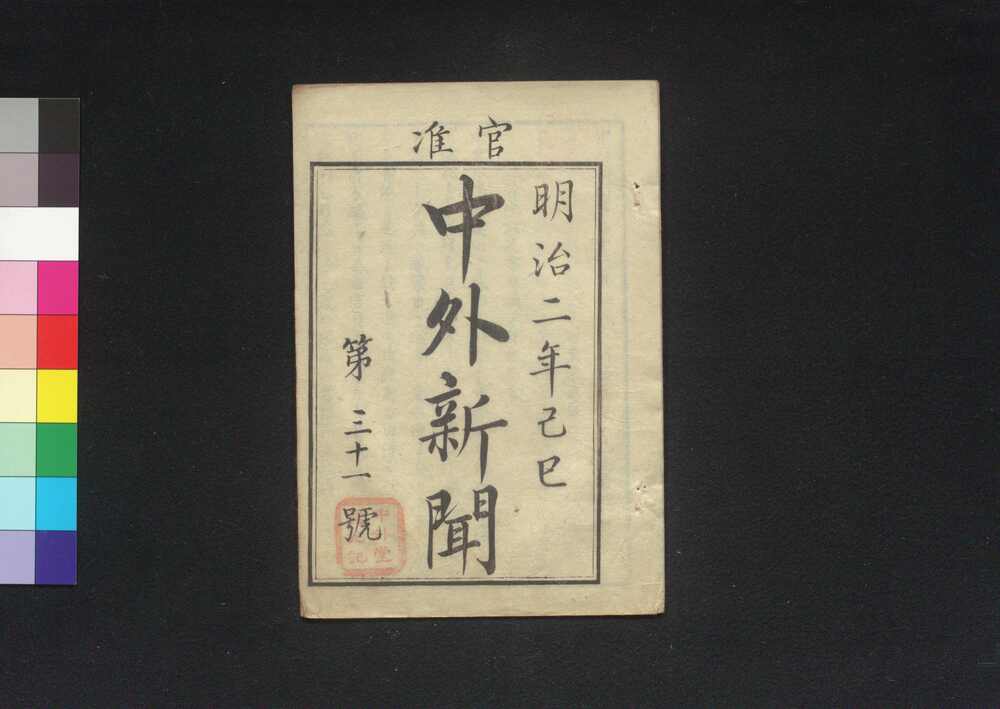 官准
明治二年己巳
中外新聞
第三十一號